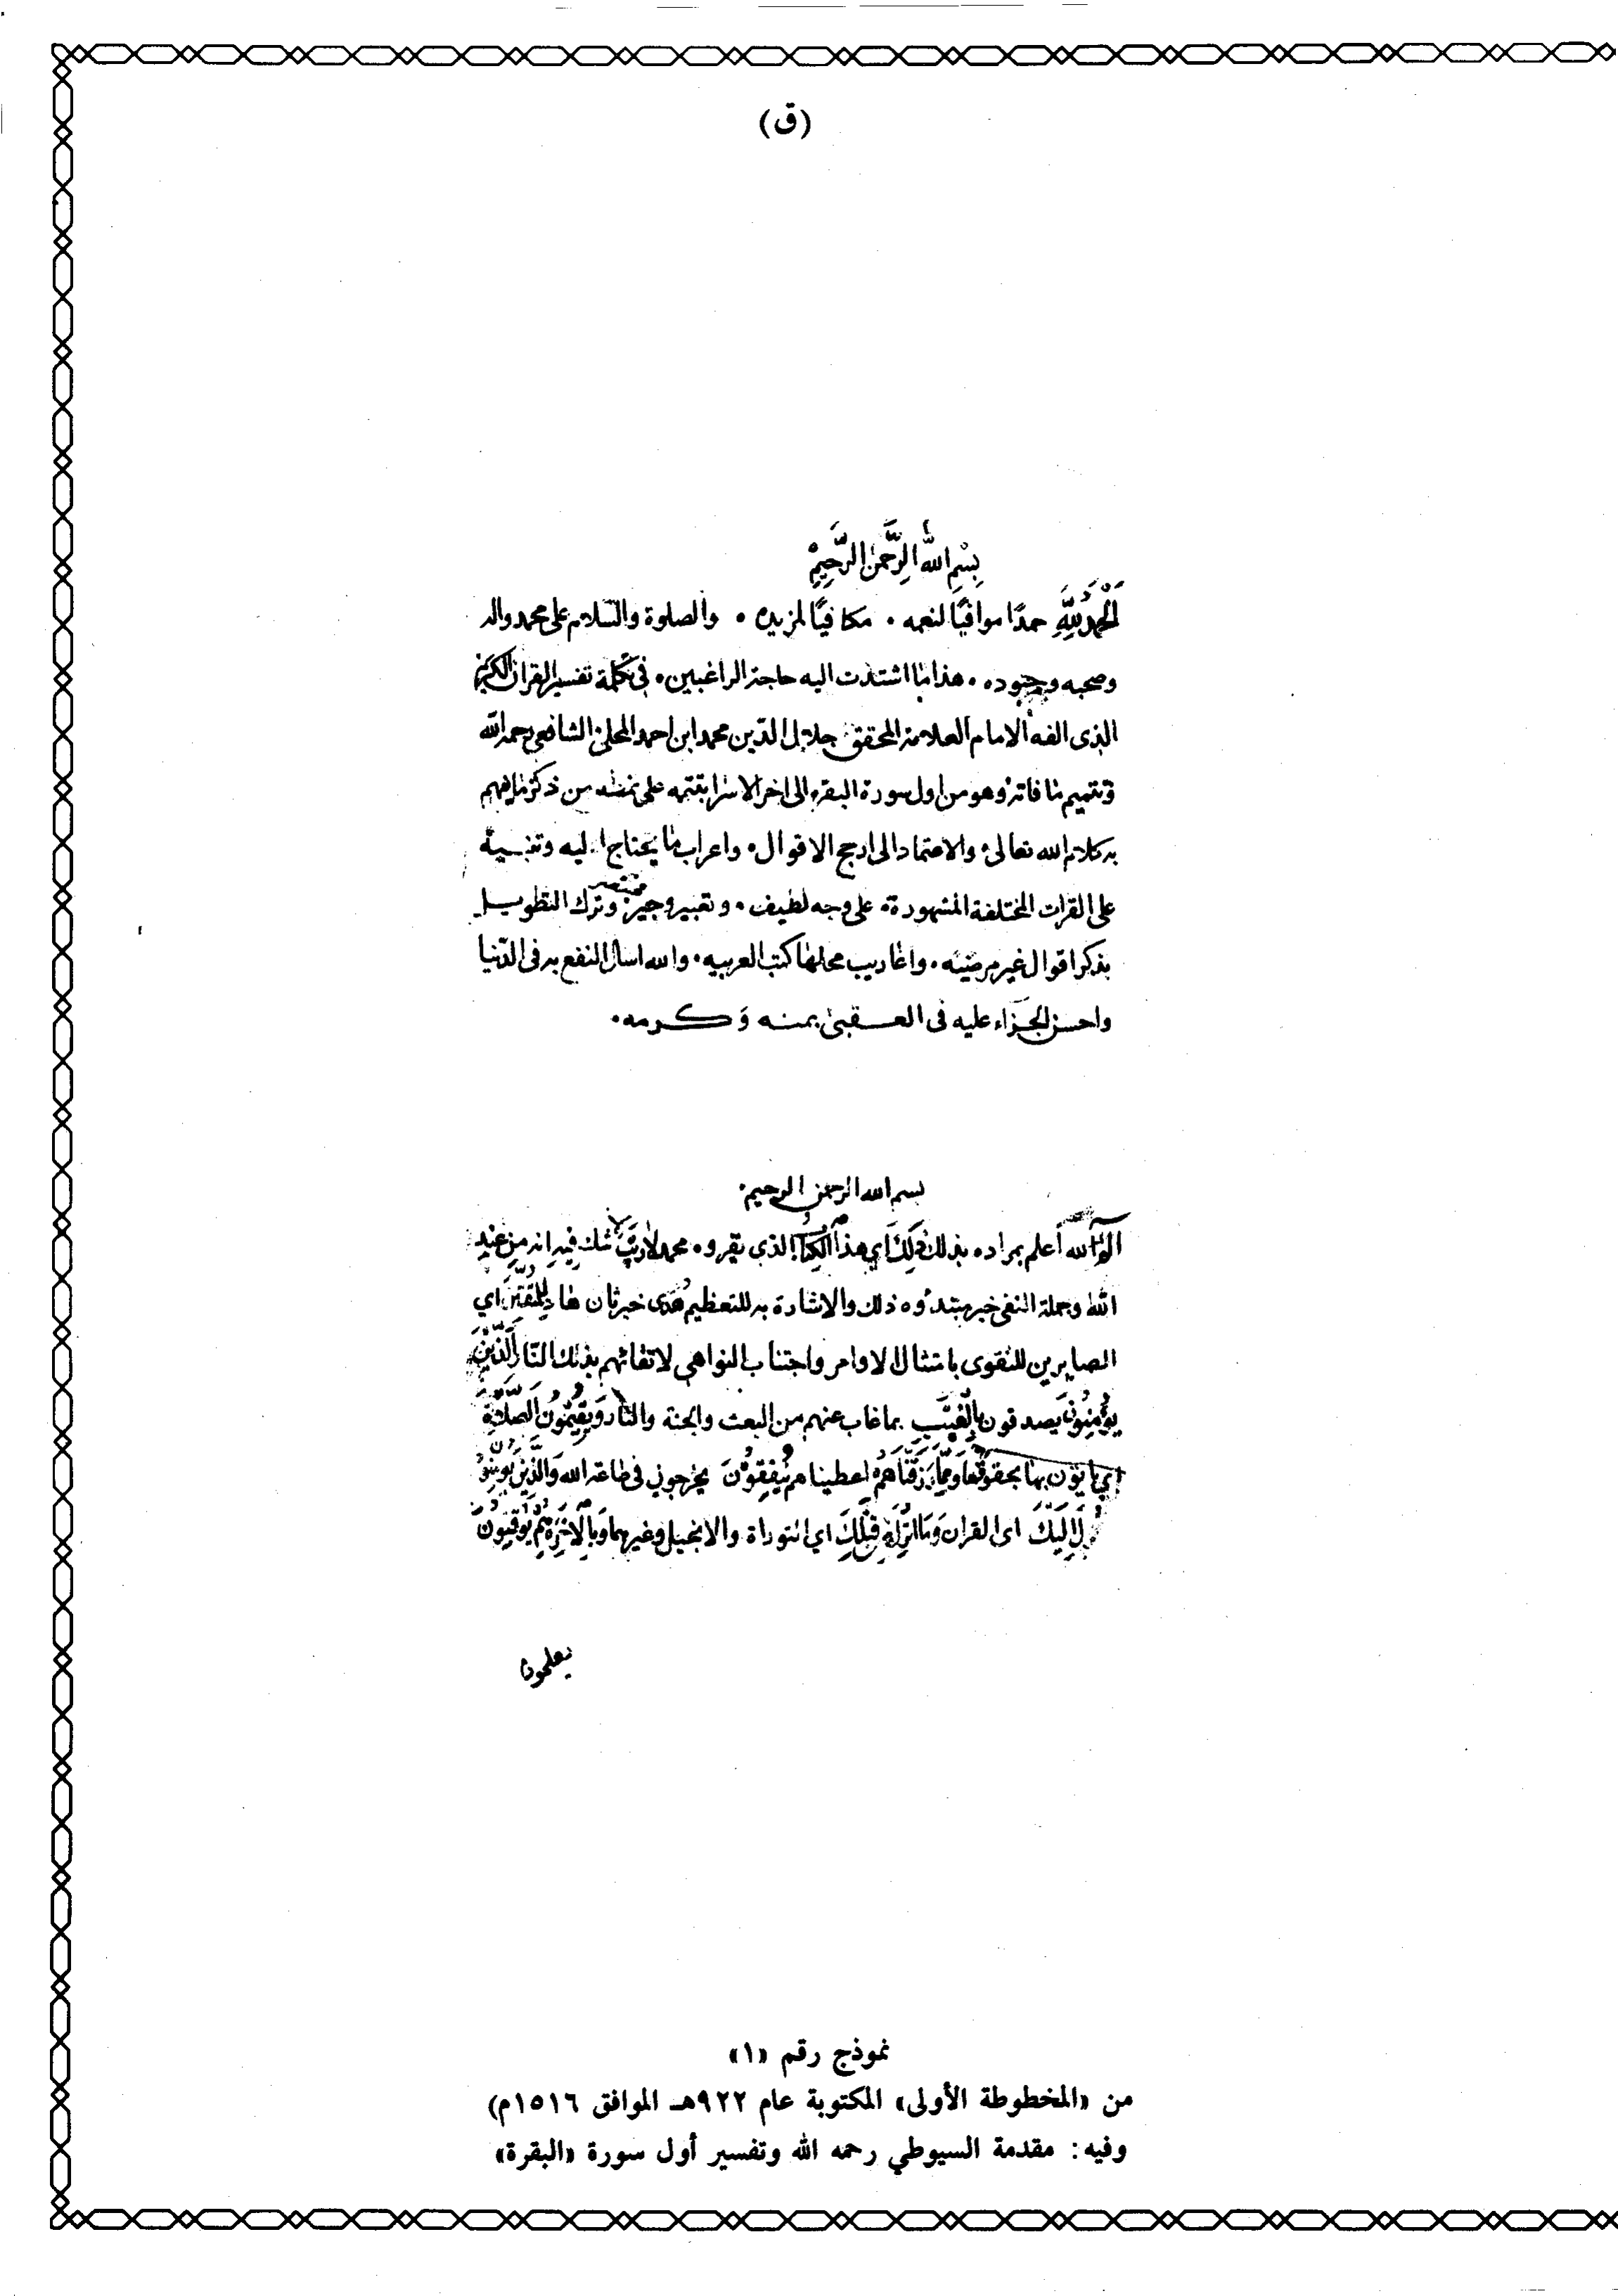 (ق)
بِسْمِ اللهِ الرَّحْمٰنِ الرَّحِيْمِ
اَلْحَمْدُ لِلّٰهِ حمدًا موافيًا لنعمه ۰ مكافيًا لمزيده ۰ والصلوة والسّلام على محمد واله
وصحبه وجنوده ۰ هذا ما اشتدت اليه حاجة الراغبين ۰ في تكملة تفسير القران الكريم
الذى الفه الامام العلامة المحقق جلال الدّين محمد ابن احمد المحلى الشافعي رحمه الله
وتتميم ما فاته وهو من اول سورة البقره الى اخر الاسرا بتتمه على نمطه من ذكر ما يفهم
به كلام الله تعالى ۰ والاعتماد الى ارجح الاقوال ۰ واعراب ما يحتاج اليه وتنبيه
على القرات المختلفة المشهورة ۰ على وجه لطيف ۰ وتعبير وجيز مختصر وترك التطويل
بذكر اقوال غير مرضيه ۰ واعاريب محلها كتب العربيه ۰ والله اسأل النفع به في الدّنيا
واحسن الجزاء عليه فى العقبى بمنه وكرمه ۰
بسم الله الرحمن الرحيم
الم الله اعلم بمراده بذلك ذٰلِكَ اي هذا الْكِتَابُ الذي يقروه محمد لَا رَيْبَ شك فِيْهِ انه من عند
الله وجملة النفى خبر مبتدؤه ذلك والاشارة به للتعظيم هُدًى خبر ثان هاد لِلْمُتَّقِيْنَ اي
الصايرين للتقوى بامتثال الاوامر واجتناب النواهي لاتقائهم بذلك النّار اَلَّذِيْنَ
يُؤْمِنُوْنَ يصدقون بِالْغَيْبِ بما غاب عنهم من البعث والجنة والنار وَيُقِيْمُوْنَ الصَّلَاةَ
اي ياتون بها بحقوقها وَمِمَّا رَزَقْنَاهُمْ اعطيناهم يُنْفِقُوْنَ يخرجون في طاعة الله وَالَّذِيْنَ يُؤْمِنُوْنَ
اِلَيْكَ اى القران وَمَا اُنْزِلَ مِنْ قَبْلِكَ اي التوراة والانجيل وغيرهما وَبِالْاٰخِرَةِ هُمْ يُوْقِنُوْنَ
يعلمون
نموذج رقم «١»
من «المخطوطة الأولى» المكتوبة عام ٩٢٢هـ الموافق ١٥١٦م)
وفيه: مقدمة السيوطي رحمه الله وتفسير أول سورة «البقرة»